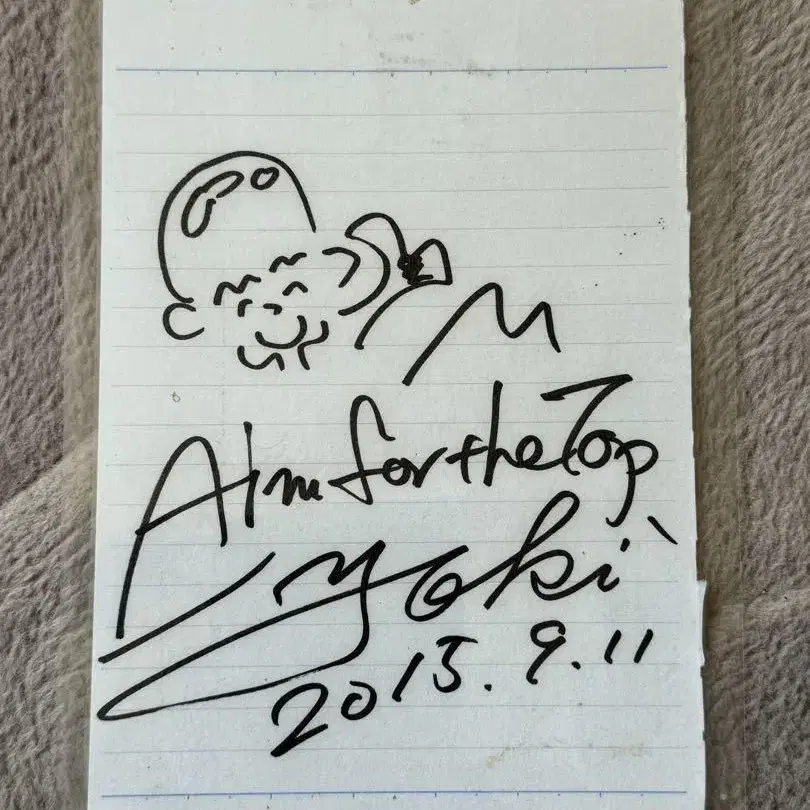 Aim for the Top
2015.9.11